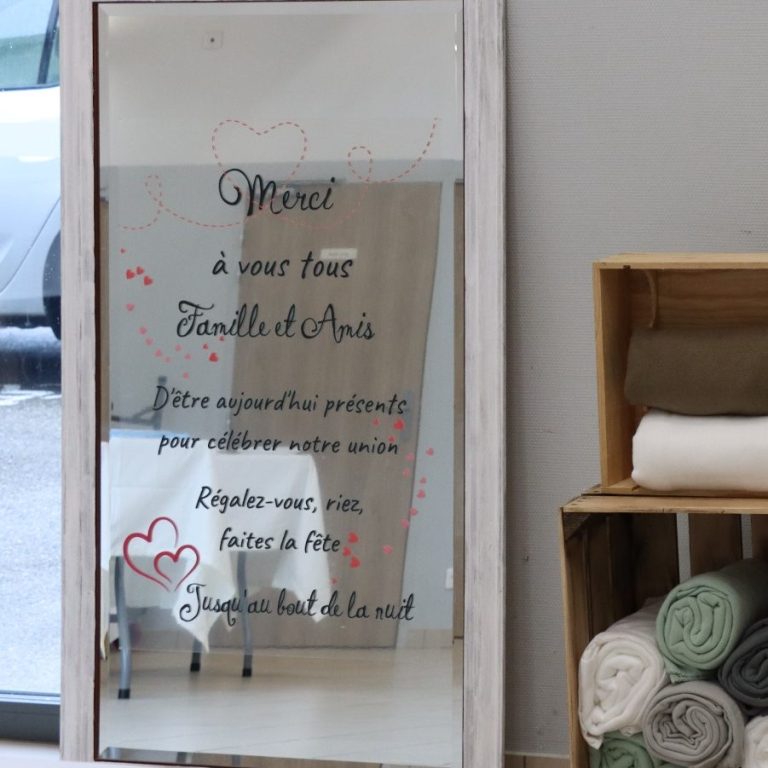 Merci
à vous tous
Famille et Amis
D'être aujourd'hui présents
pour célébrer notre union
Régalez-vous, riez,
faites la fête
Jusqu'au bout de la nuit